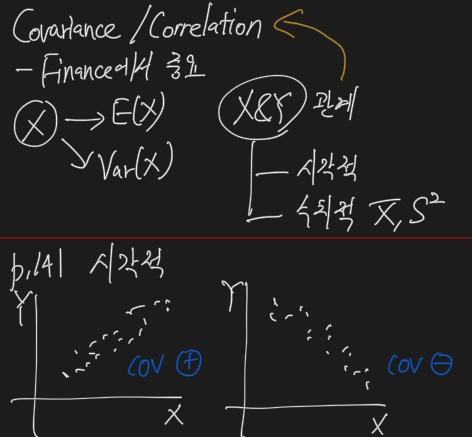 Covariance / Correlation
- Finance에서 중요
X → E(X)
↘ Var(X)
X&Y 관계
시각적
수치적 X̄, S²
p.141 시각적
Y
cov ⊕
X
Y
cov ⊖
X